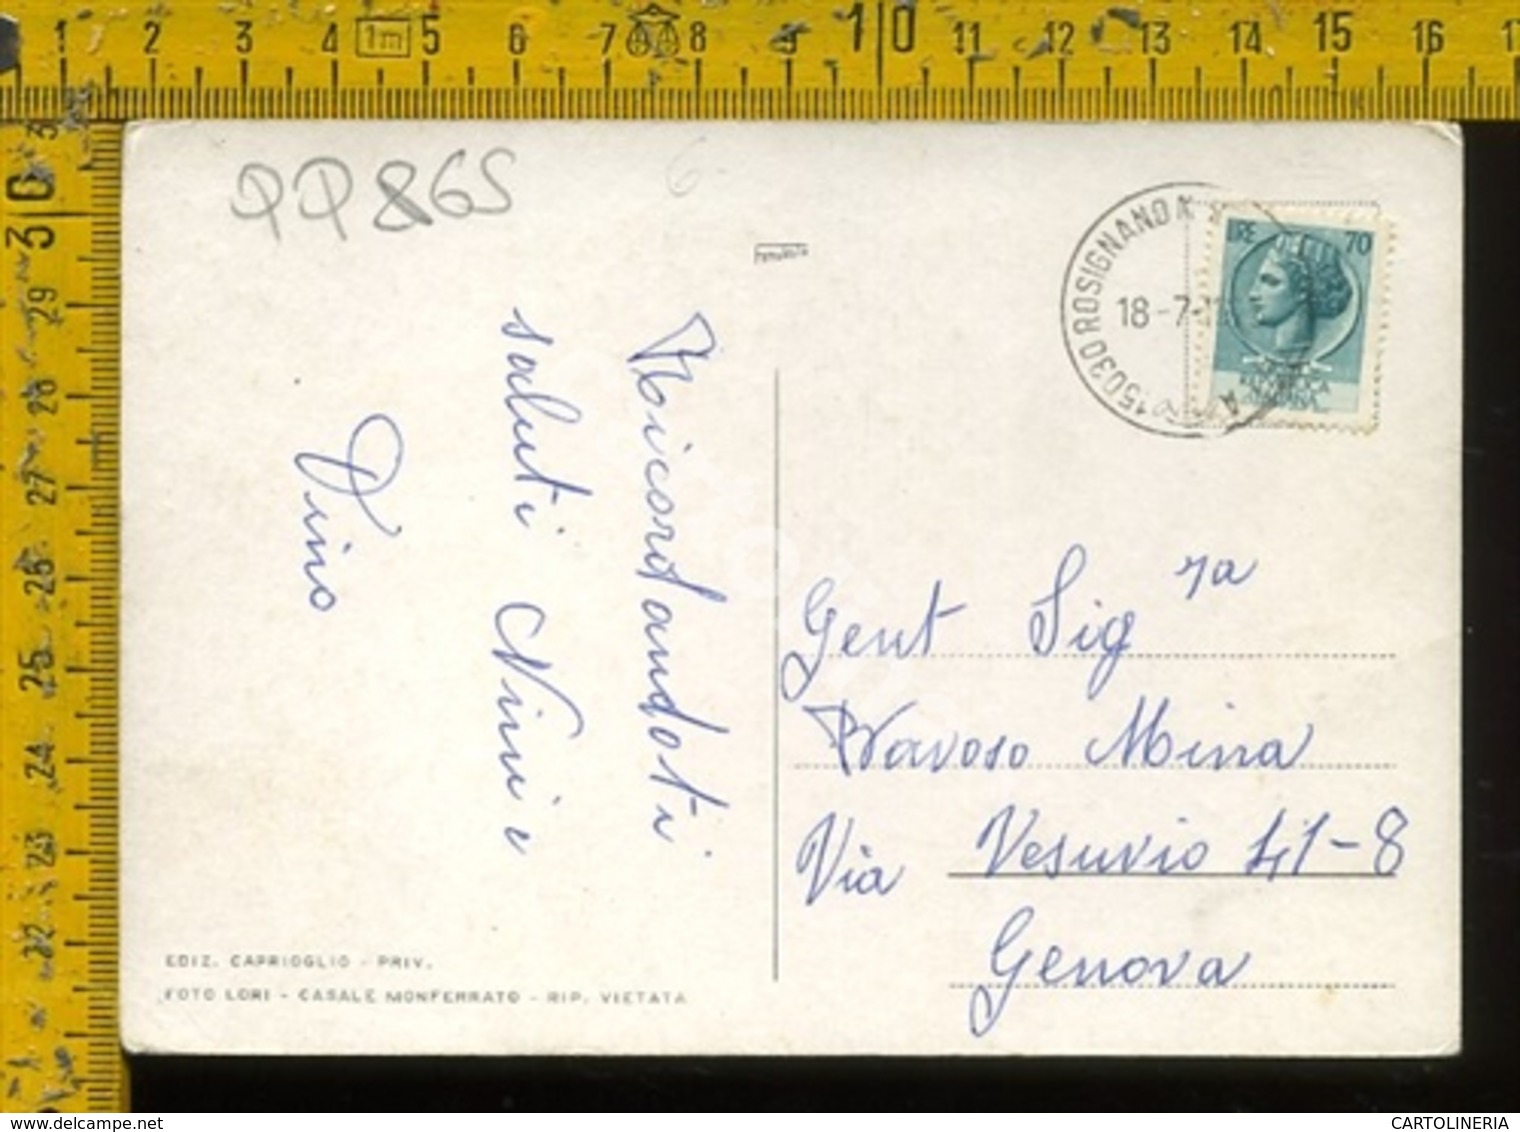 1 2 3 4 1m 5 6 7 8 9 10 11 12 13 14 15 16 17
30
29
28
27
26
25
24
23
22
PP865
6
15030 ROSIGNANO M
18-7-
LIRE 70
Ricordandoti
saluti Nini e
Dino
Gent Sig ra
Bavoso Mina
Via Vesuvio 41-8
Genova
EDIZ. CAPRIOGLIO - PRIV.
FOTO LORI - CASALE MONFERRATO - RIP. VIETATA
www.delcampe.net
CARTOLINERIA